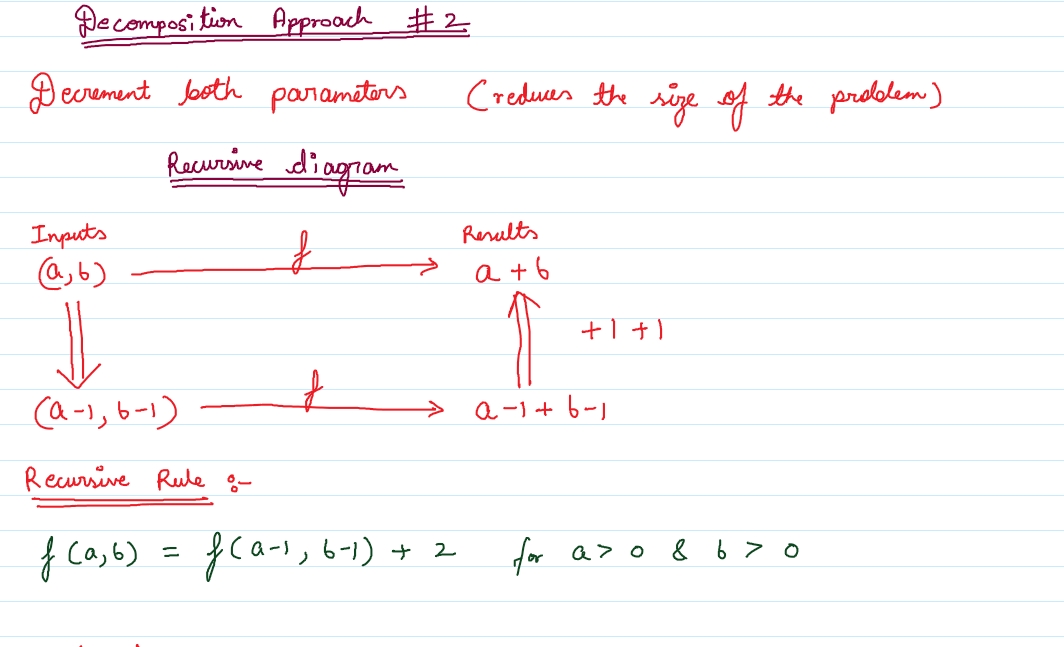 Decomposition Approach #2
Decrement both parameters (reduces the size of the problem)
Recursive diagram
Inputs Results
(a,b) f a+b
+1 +1
(a-1, b-1) f a-1+b-1
Recursive Rule :-
f(a,b) = f(a-1, b-1) + 2 for a>0 & b>0